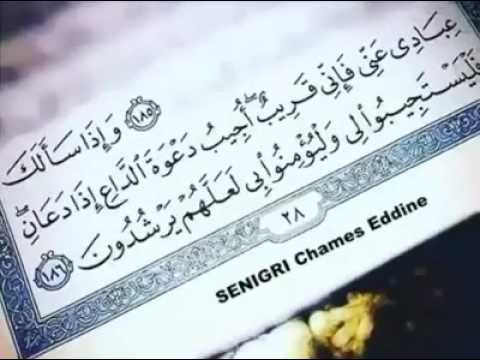 ﴿١٨٥﴾ وَإِذَا سَأَلَكَ
عِبَادِى عَنِّى فَإِنِّى قَرِيبٌ ۖ أُجِيبُ دَعْوَةَ ٱلدَّاعِ إِذَا دَعَانِ ۖ
فَلْيَسْتَجِيبُوا۟ لِى وَلْيُؤْمِنُوا۟ بِى لَعَلَّهُمْ يَرْشُدُونَ ﴿١٨٦﴾
٢٨
SENIGRI Chames Eddine